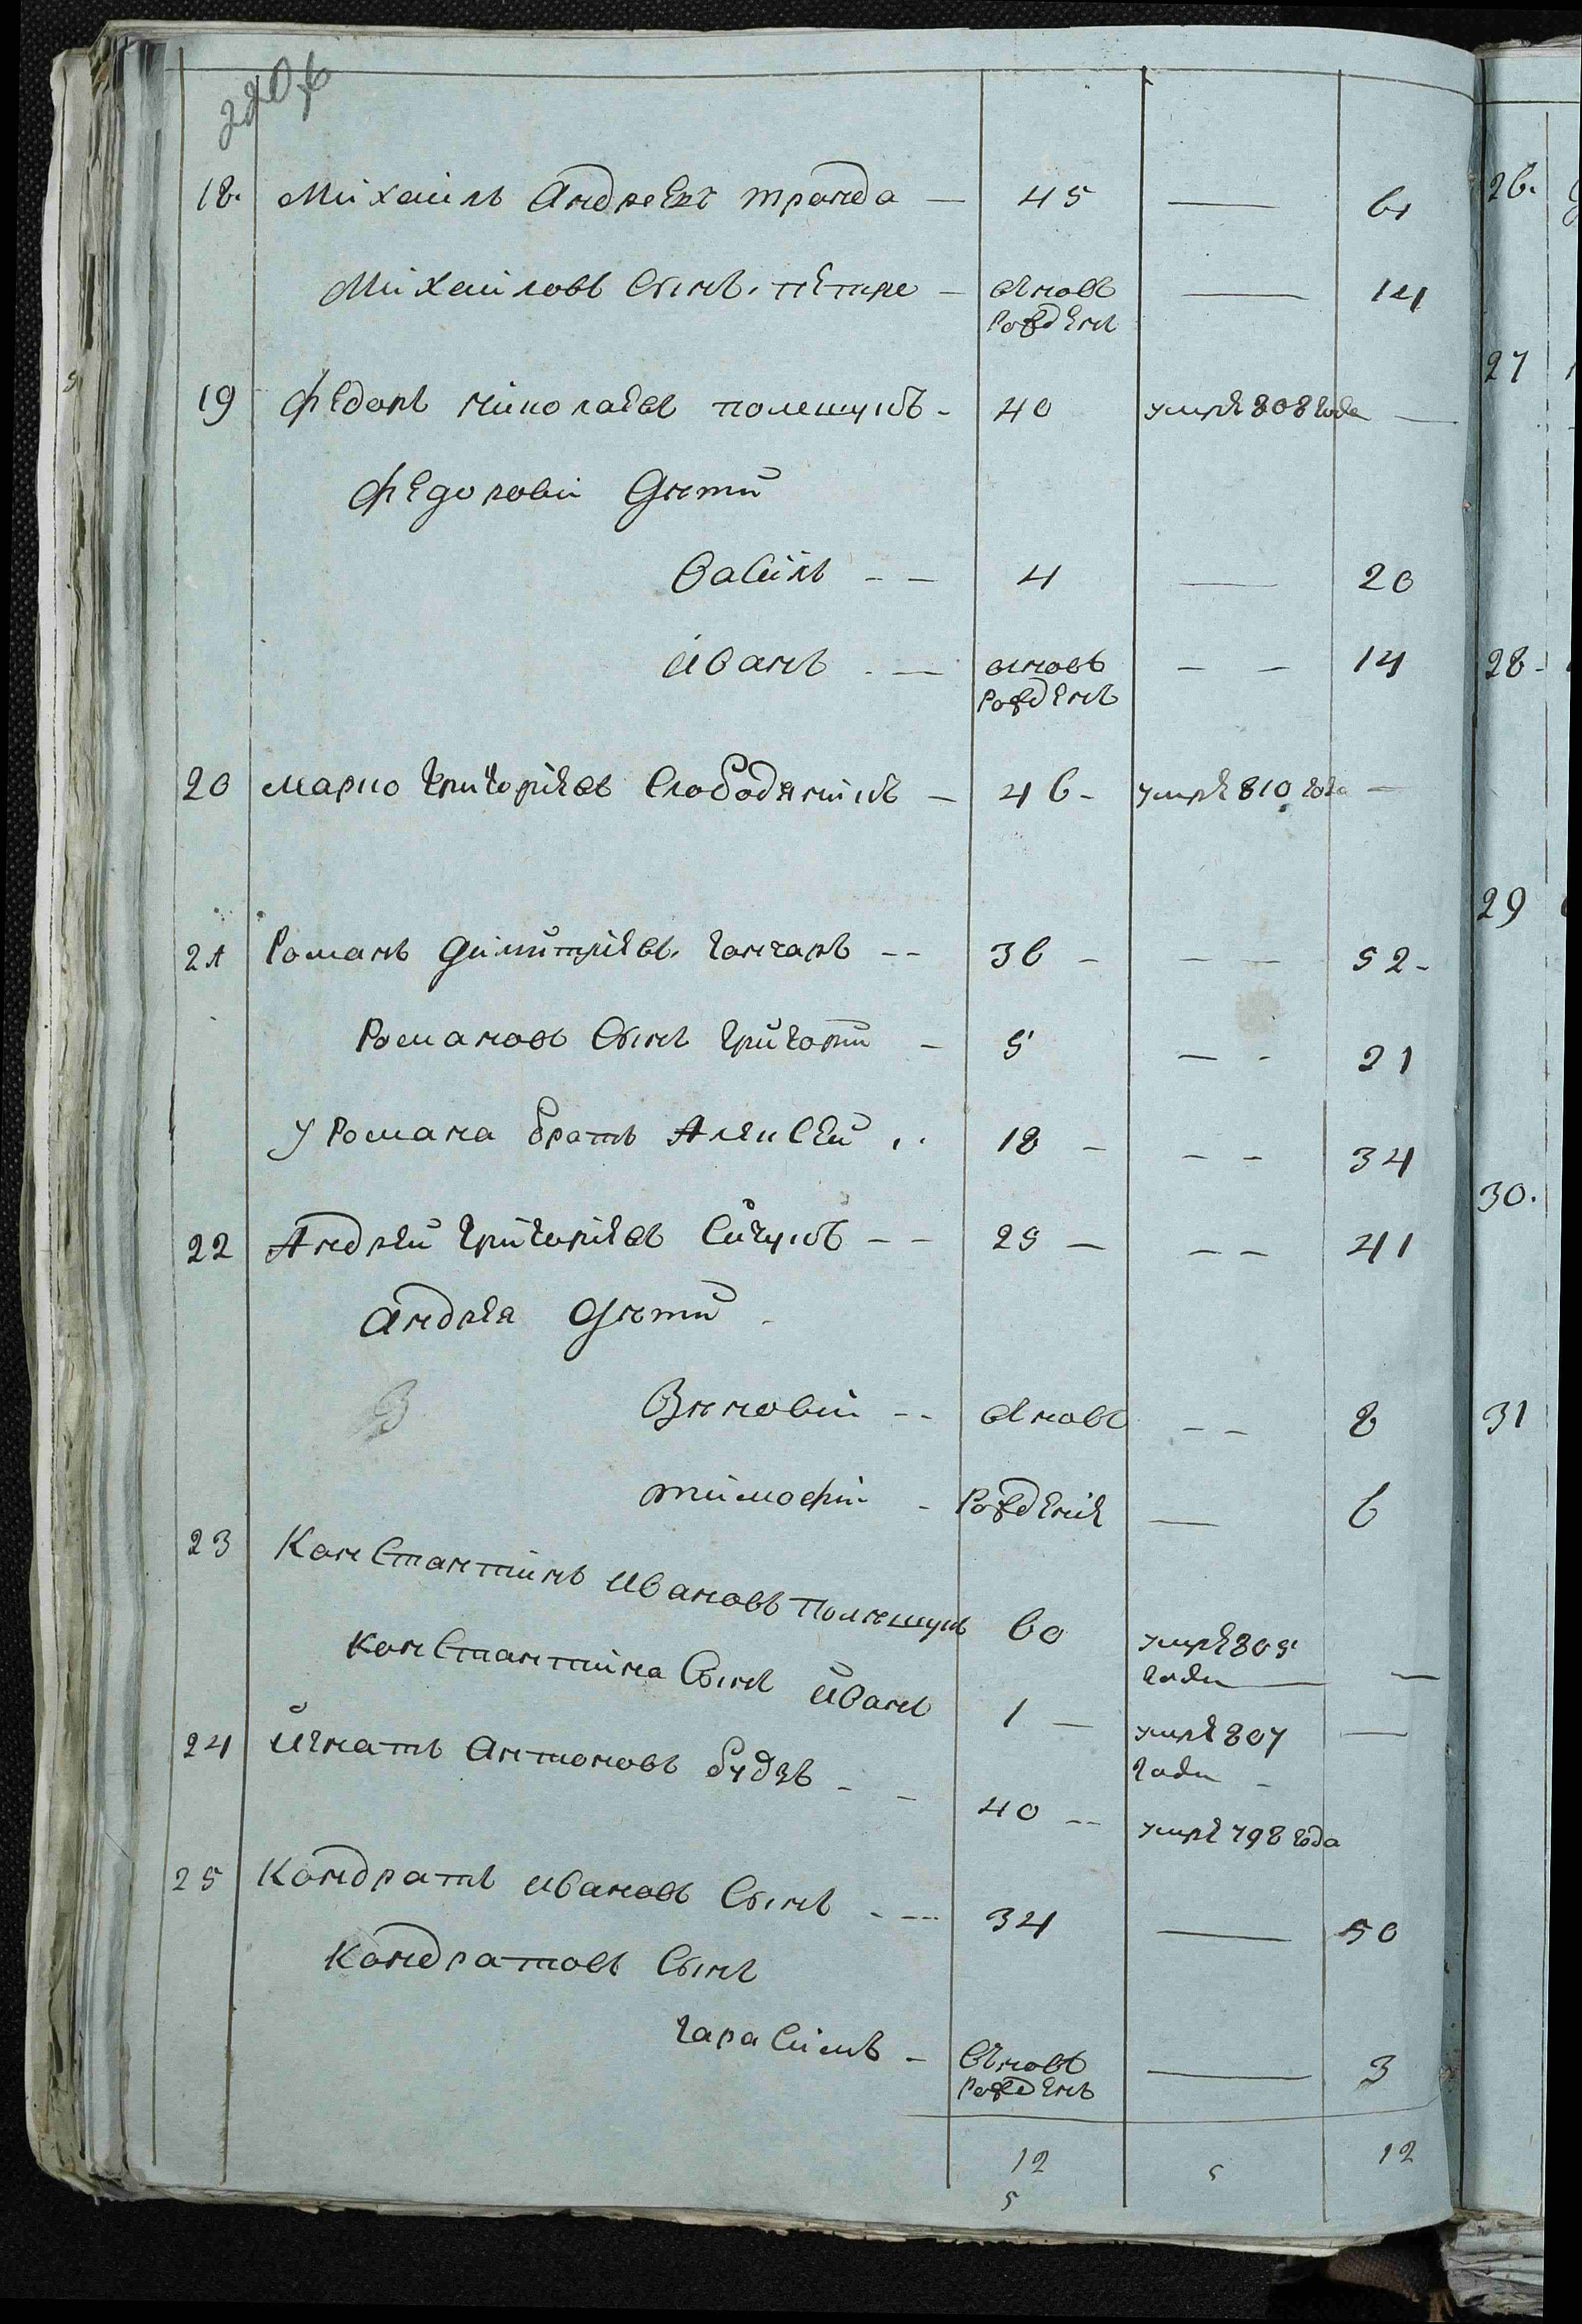 18. Михаилъ Андреевъ транда — 45 — 61
Михаиловъ Сынъ. петре — вновъ рожденъ — 14
19 Федоръ николаевъ полещукъ - 40 умре 808 года —
Федорови Дѣти
Василъ - - 4 — 20
Иванъ - — вновъ рожденъ - - 14
20 марко григориевъ Слободянникъ - 46 - умре 810 года —
21 Романъ Димитриевъ. гончаръ -- 36 - - - 52 -
Романовъ Сынъ григорий - 5 - - 21
У Романа братъ Алексей 18 - - - 34
22 Андрей григориевъ Сичукъ - - 25 - - - 41
Андрея Дѣти
Зѣновий - - вновъ - - 8
тимофий - рождение — 6
23 Константинъ Ивановъ Полещукъ 60 умре 805 года —
Константина Сынъ Иванъ 1 — умре 807 года —
24 Игнатъ Антоновъ будзъ - - 40 -- умре 798 года
25 Кондратъ Ивановъ Сынъ - — 34 — 50
Кондратовъ Сынъ
гарасимъ - вновъ рожденъ — 3
12 5 12
5
26.
27
28 -
29
30.
31